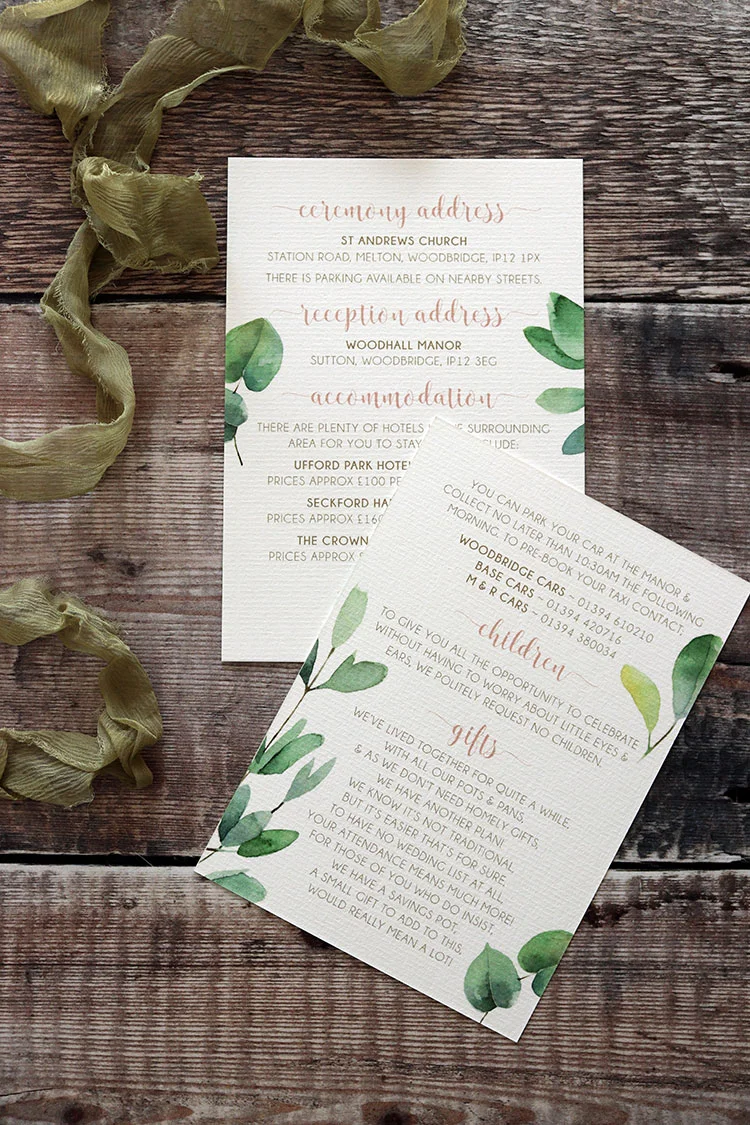 ceremony address
ST ANDREWS CHURCH
STATION ROAD, MELTON, WOODBRIDGE, IP12 1PX
THERE IS PARKING AVAILABLE ON NEARBY STREETS.
reception address
WOODHALL MANOR
SUTTON, WOODBRIDGE, IP12 3EG
accommodation
THERE ARE PLENTY OF HOTELS SURROUNDING
AREA FOR YOU TO STAY
UFFORD PARK HOTE
PRICES APPROX £100 PE
SECKFORD HA
PRICES APPROX £160
THE CROWN
PRICES APPROX £
YOU CAN PARK YOUR CAR AT THE MANOR &
COLLECT NO LATER THAN 10:30AM THE FOLLOWING
MORNING. TO PRE-BOOK YOUR TAXI CONTACT,
WOODBRIDGE CARS – 01394 610210
BASE CARS – 01394 420716
M & R CARS – 01394 380034
children
TO GIVE YOU ALL THE OPPORTUNITY TO CELEBRATE
WITHOUT HAVING TO WORRY ABOUT LITTLE EYES &
EARS, WE POLITELY REQUEST NO CHILDREN.
gifts
WE'VE LIVED TOGETHER FOR QUITE A WHILE,
WITH ALL OUR POTS & PANS,
& AS WE DON'T NEED HOMELY GIFTS,
WE HAVE ANOTHER PLAN!
WE KNOW IT'S NOT TRADITIONAL
BUT IT'S EASIER THAT'S FOR SURE,
TO HAVE NO WEDDING LIST AT ALL,
YOUR ATTENDANCE MEANS MUCH MORE!
FOR THOSE OF YOU WHO DO INSIST,
WE HAVE A SAVINGS POT,
A SMALL GIFT TO ADD TO THIS,
WOULD REALLY MEAN A LOT!